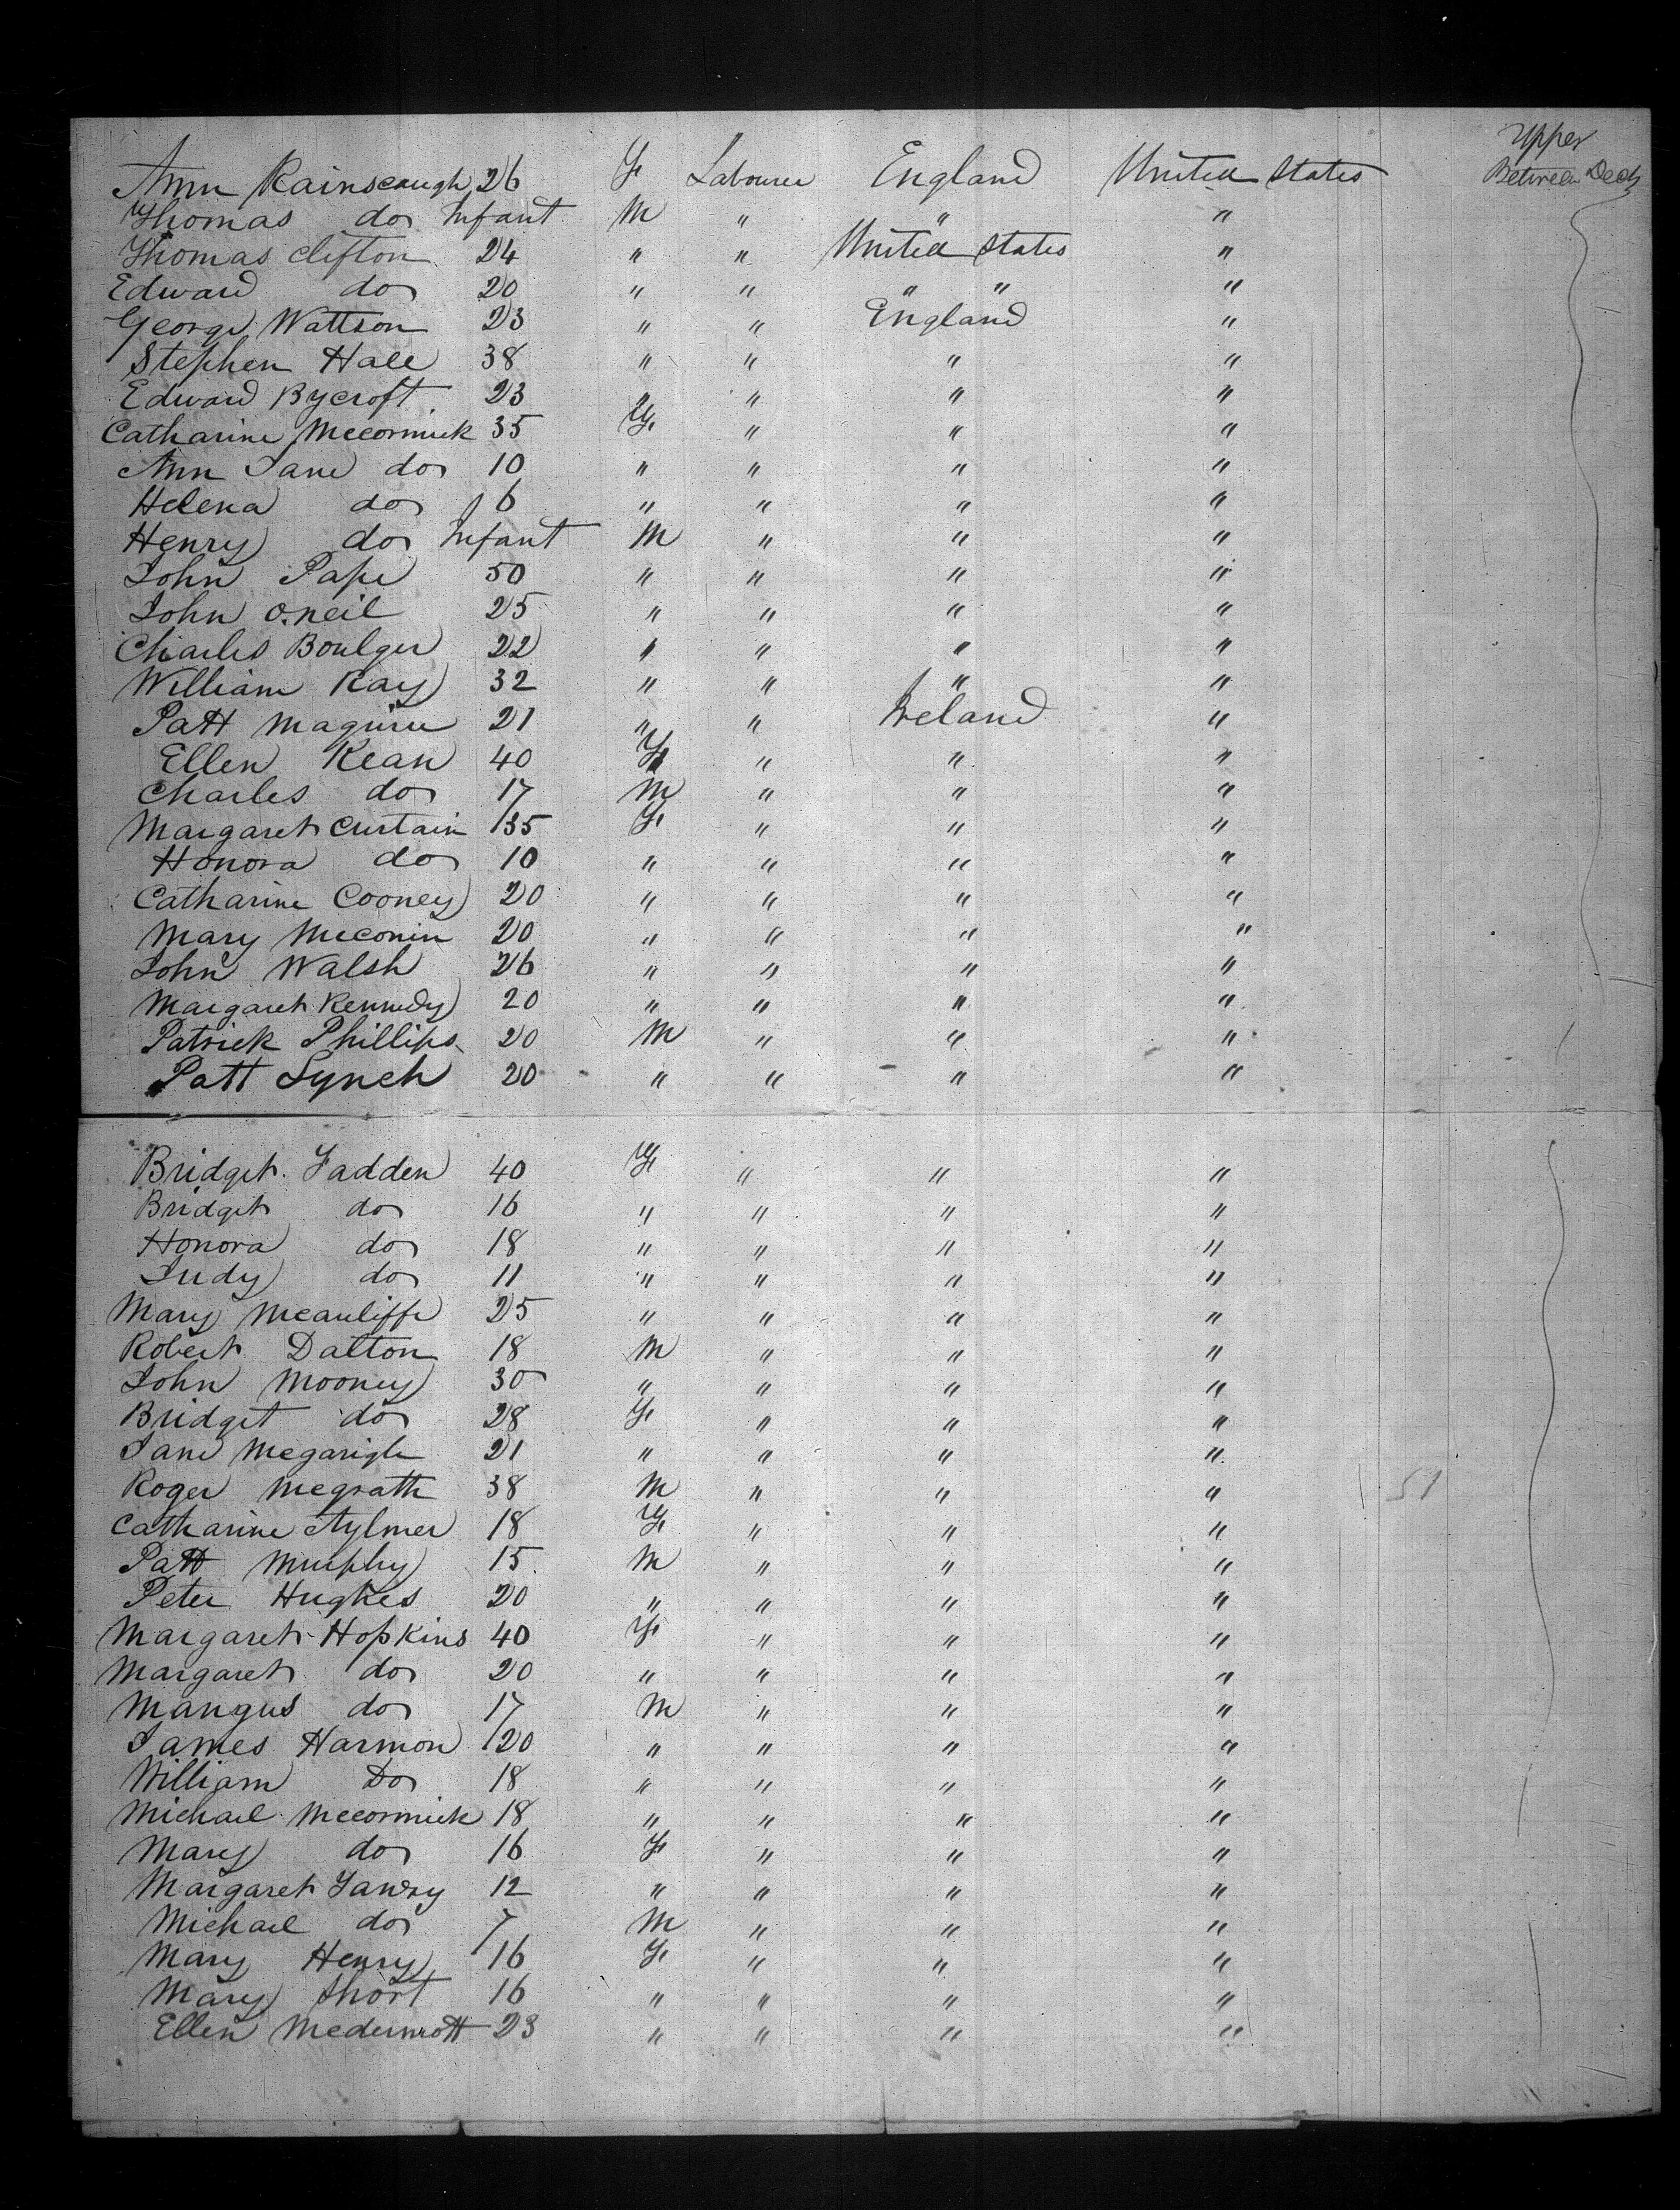 Upper
Ann Rainscough 26 F Labourer England United States Between Deck
Thomas do Infant M " " "
Thomas Clifton 24 " " United States "
Edward do 20 " " " " "
George Wattson 23 " " England "
Stephen Hale 38 " " " "
Edward Bycroft 23 " " " "
Catharine Mccormick 35 F " " "
Ann Jane do 10 " " " "
Helena do 6 " " " "
Henry do Infant M " " "
John Pape 50 " " " "
John O.neil 25 " " " "
Charles Boulger 22 " " " "
William Ray 32 " " " "
Patt Maguire 21 " " Ireland "
Ellen Kean 40 F " " "
Charles do 17 M " " "
Margaret Curtain 35 F " " "
Honora do 10 " " " "
Catharine Cooney 20 " " " "
Mary Mcconin 20 " " " "
John Walsh 26 " " " "
Margaret Kennedy 20 " " " "
Patrick Phillips 20 M " " "
Patt Lynch 20 " " " "
Bridget Fadden 40 F " " "
Bridget do 16 " " " "
Honora do 18 " " " "
Judy do 11 " " " "
Mary Mcauliffe 25 " " " "
Robert Dalton 18 M " " "
John Mooney 30 " " " "
Bridget do 28 F " " "
Jane Mcgarigle 21 " " " "
Roger Mcgrath 38 M " " " 51
Catharine Aylmer 18 F " " "
Patt Murphy 15 M " " "
Peter Hughes 20 " " " "
Margaret Hopkins 40 F " " "
Margaret do 20 " " " "
Mangus do 17 M " " "
James Harmon 20 " " " "
William Do 18 " " " "
Michael Mccormick 18 " " " "
Mary do 16 F " " "
Margaret 12 " " " "
Michael do 7 M " " "
Mary Henry 16 F " " "
Mary Short 16 " " " "
Ellen Mcdermott 23 " " " "